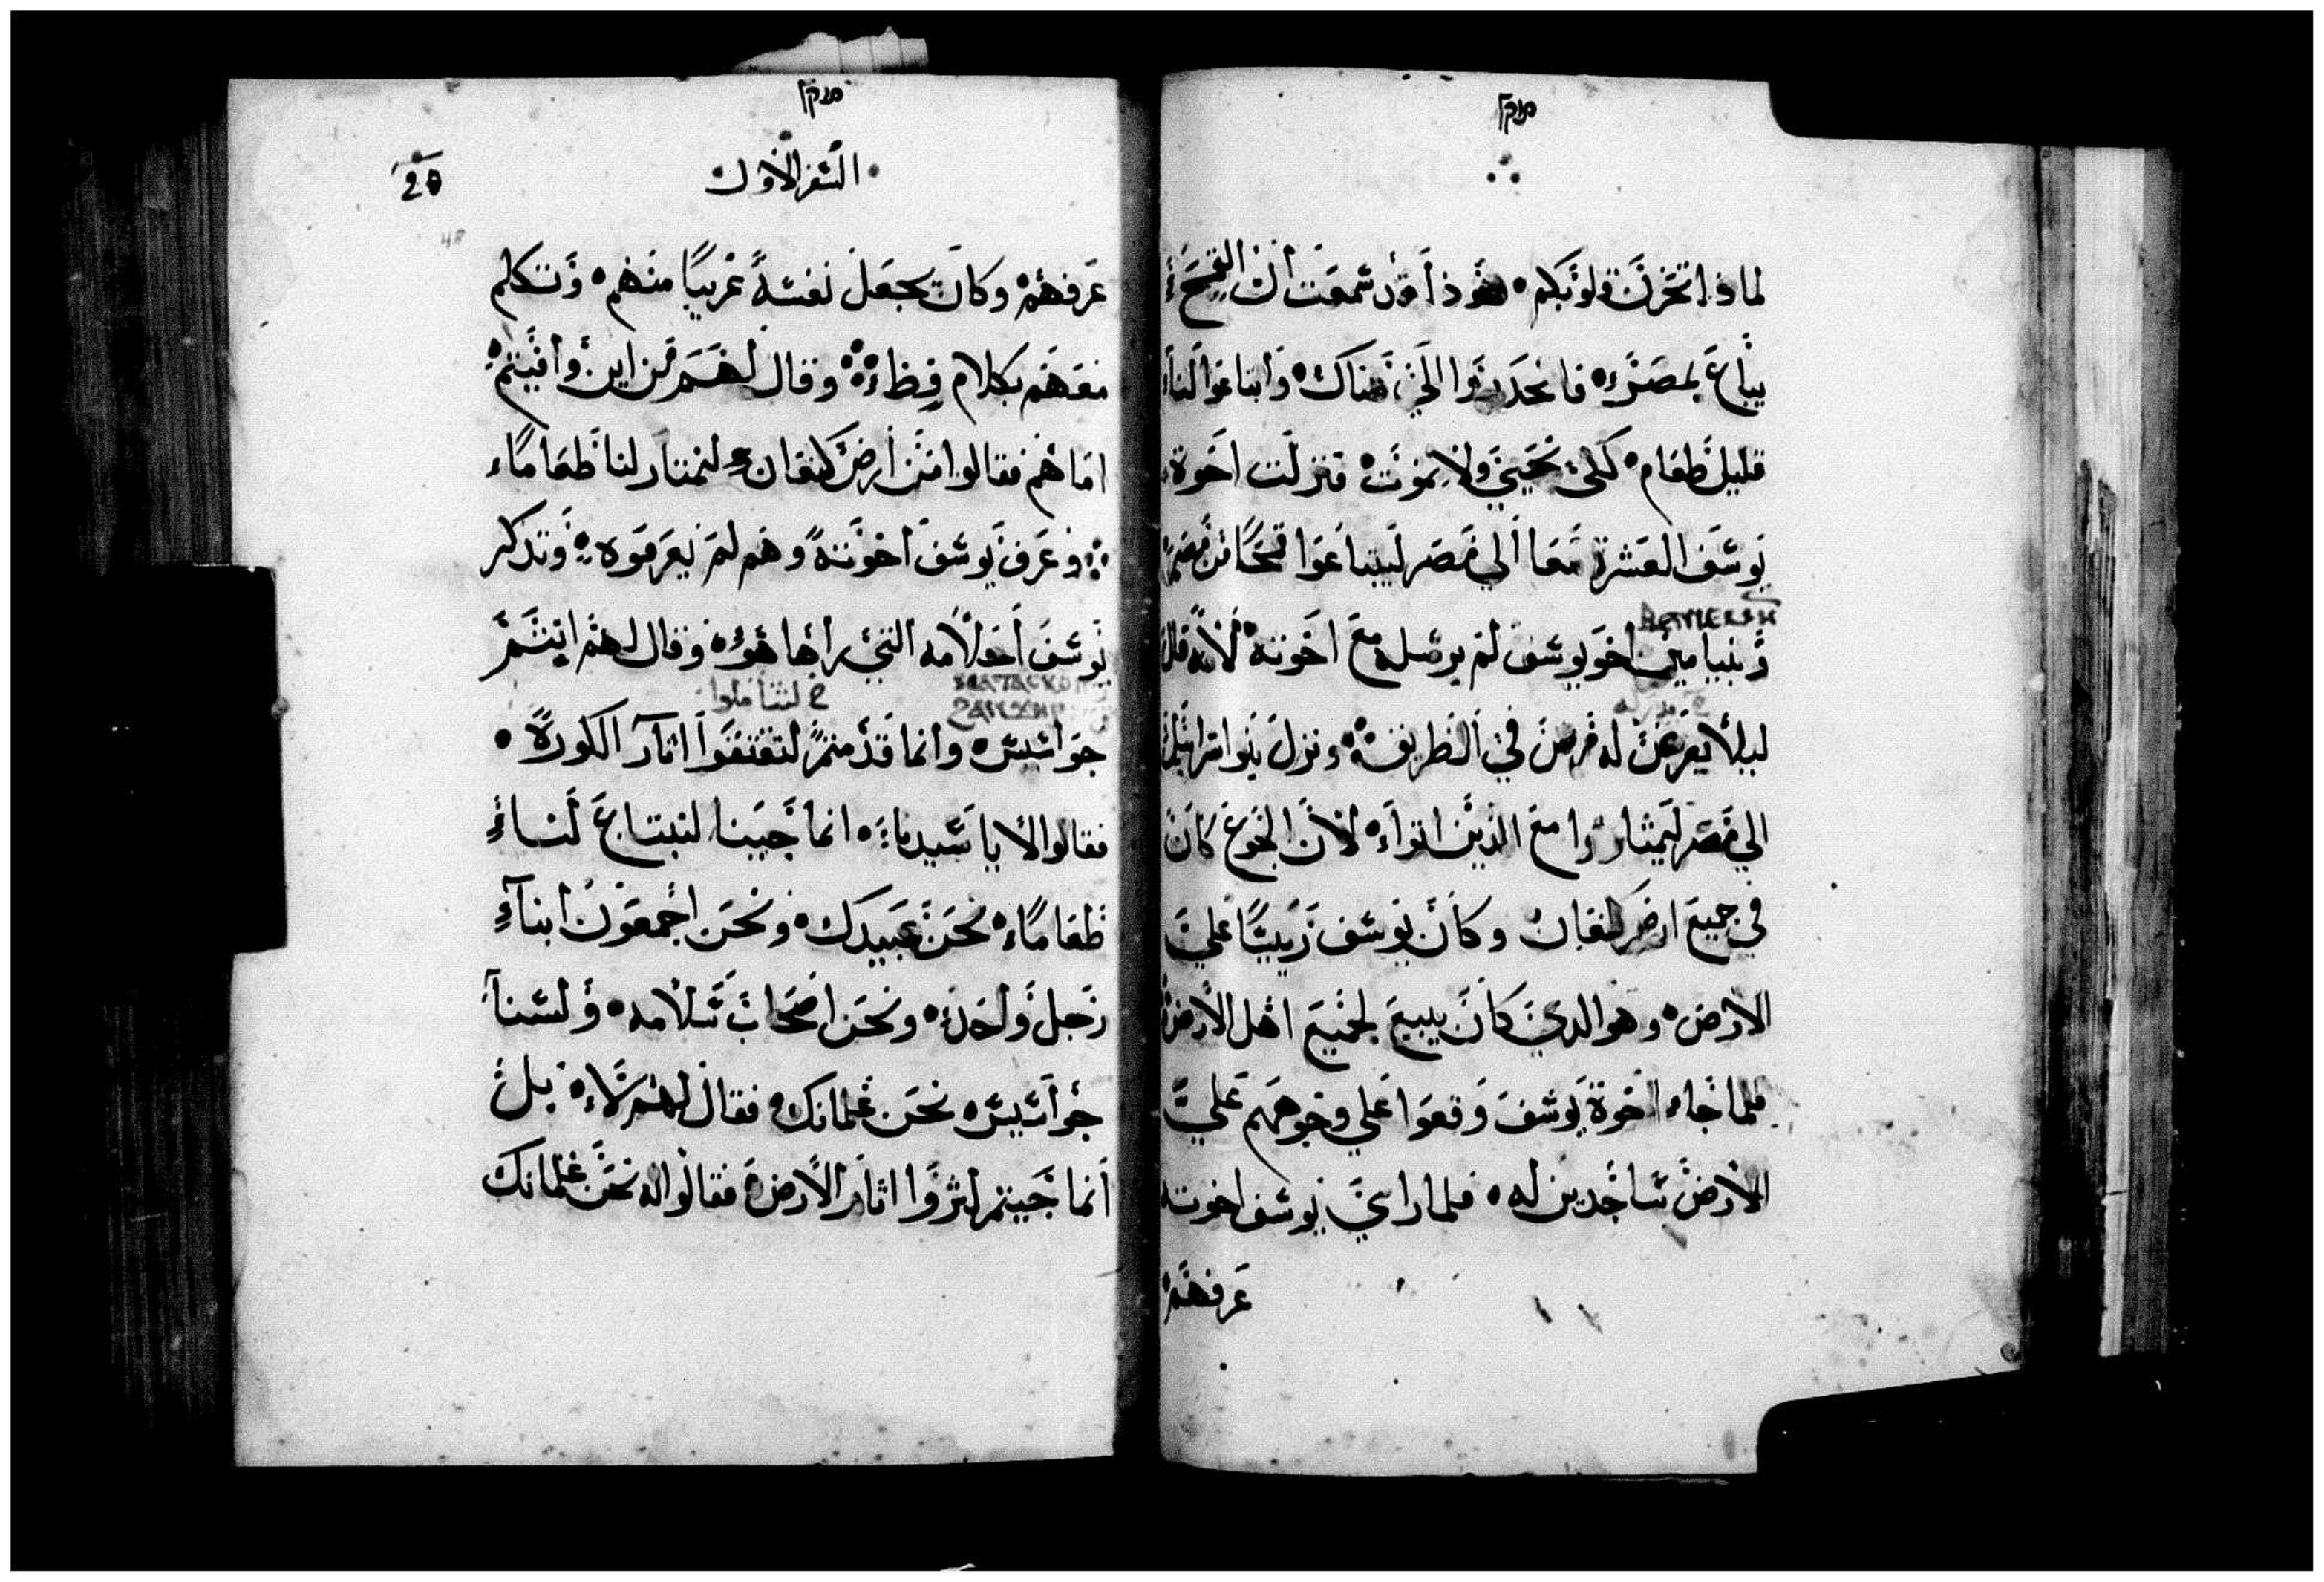 لماذا تحزن قلوبكم هوذا قد سمعت ان القمح
يباع بمصر فانحدروا الي هناك وابتاعوا لنا
قليل طعام لكي نحيي ولا نموت فنزلت اخوة
يوسف العشرة معا الي مصر ليبتاعوا قمحا من مصر
وبنيامين اخو يوسف لم يرسله مع اخوته لانه قال
ليلا يعرض له مرض في الطريق ونزل بنوا اسرايل
الي مصر ليمتاروا مع الذين اتوا لان الجوع كان
في جميع ارض كنعان وكان يوسف رييسا علي
الارض وهو الدي كان يبيع لجميع اهل الارض
فلما جاء اخوة يوسف وقعوا علي وجوههم علي
الارض ساجدين له فلما راي يوسف اخوته
عرفهم
السفر الاول
عرفهم وكان يجعل نفسه غريبا منهم وتكلم
معهم بكلام فظ وقال لهم من اين وافيتم
اما هم فقالوا من ارض كنعان لنمتار لنا طعاما
وعرف يوسف اخوته وهم لم يعرفوه وتدكر
يوسف احلامه التي راها هو وقال لهم انتم
لتتاملوا
جواسيس وانما قدمتم لتقتفوا اثار الكورة
فقالوا لا يا سيدنا انما جينا لنبتاع لنا
طعاما نحن عبيدك ونحن اجمعون ابناء
رجل واحد ونحن اصحاب سلامه ولسنا
جواسيس نحن غلمانك فقال لهم لا بل
انما جيتم لتروا اثار الارض فقالوا له نحن غلمانك